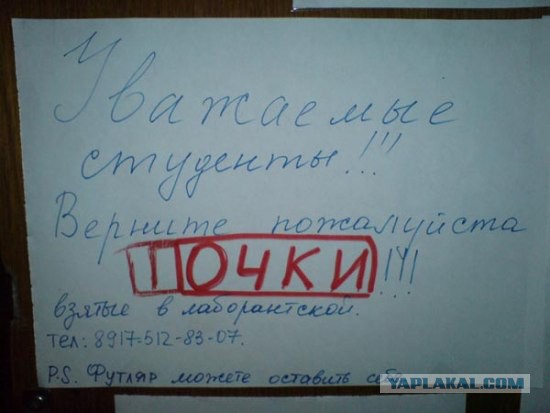 Уважаемые
студенты!!!
Верните пожалуйста
ОЧКИ!!!
взятые в лаборантской.
тел: 8917-512-83-07.
P.S. Футляр можете оставить себе
YAPLAKAL.COM